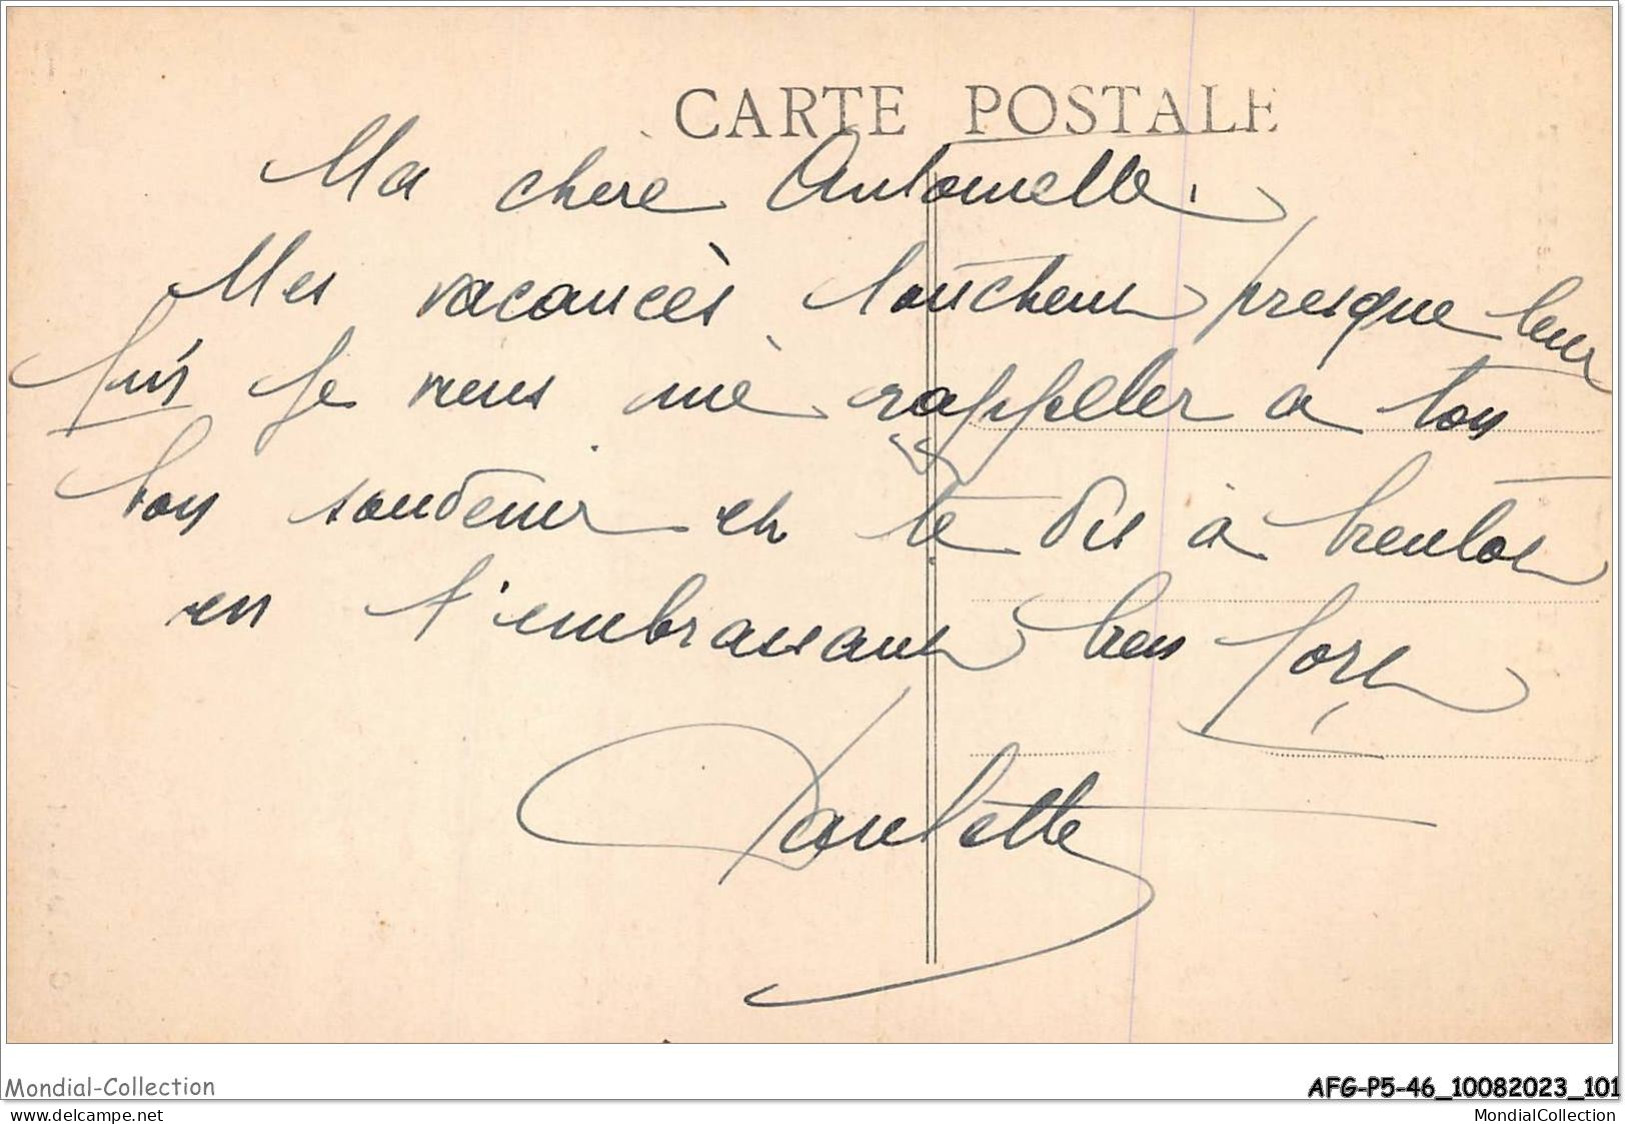 CARTE POSTALE
Ma chere Antoinette.
Mes vacances touchent presque leur
fin je viens me rappeler a ton
bon souvenir et te dis à bientot
en t'embrassant bien fort
Paulette
Mondial-Collection
AFG-P5-46_10082023_101
www.delcampe.net
MondialCollection